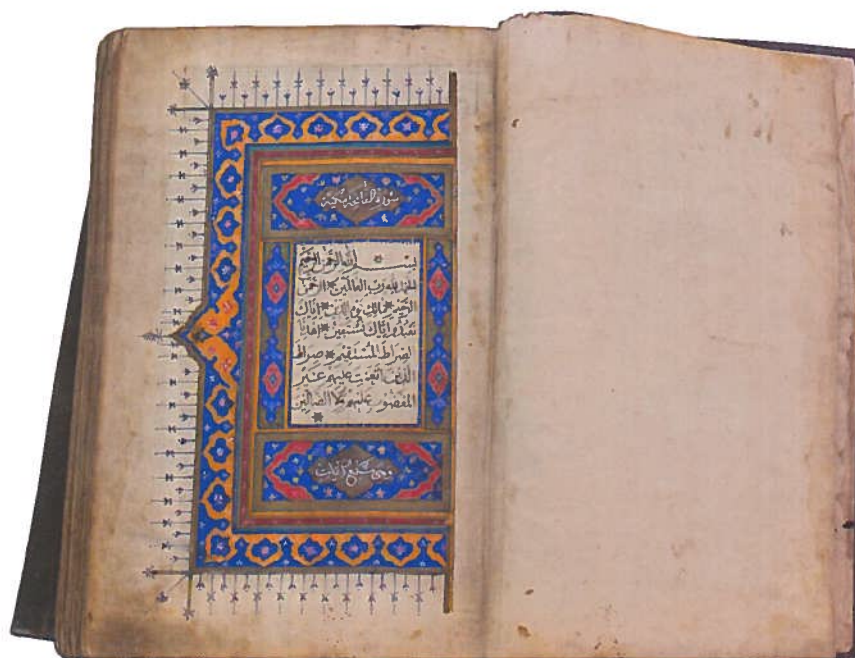 سورة الفاتحة مكية
بسم الله الرحمن الرحيم
الحمد لله رب العالمين * الرحمن
الرحيم * مالك يوم الدين * إياك
نعبد وإياك نستعين * اهدنا
الصراط المستقيم * صراط
الذين أنعمت عليهم غير
المغضوب عليهم ولا الضالين
*
وهي سبع آيات